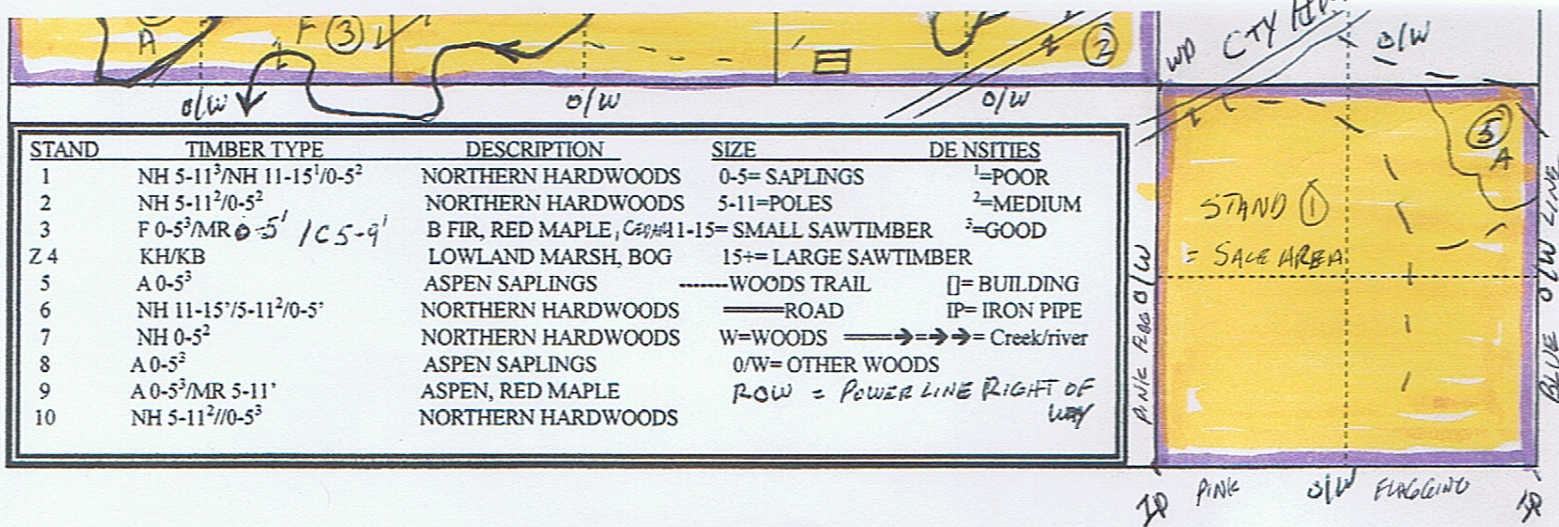 A
F ③
②
WD CTY
O/W
O/W O/W O/W
STAND TIMBER TYPE DESCRIPTION SIZE DE NSITIES
1 NH 5-11³/NH 11-15¹/0-5² NORTHERN HARDWOODS 0-5= SAPLINGS ¹=POOR
2 NH 5-11²/0-5² NORTHERN HARDWOODS 5-11=POLES ²=MEDIUM
3 F 0-5³/MR 0-5¹ /C 5-9¹ B FIR, RED MAPLE, 11-15= SMALL SAWTIMBER ³=GOOD
Z 4 KH/KB LOWLAND MARSH, BOG 15+= LARGE SAWTIMBER
5 A 0-5³ ASPEN SAPLINGS -------WOODS TRAIL []= BUILDING
6 NH 11-15'/5-11²/0-5' NORTHERN HARDWOODS ROAD IP= IRON PIPE
7 NH 0-5² NORTHERN HARDWOODS W=WOODS ═══➔=➔➔= Creek/river
8 A 0-5³ ASPEN SAPLINGS 0/W= OTHER WOODS
9 A 0-5³/MR 5-11' ASPEN, RED MAPLE ROW = POWER LINE RIGHT OF
WAY
10 NH 5-11²//0-5³ NORTHERN HARDWOODS
⑤
A
STAND ①
= SALE AREA
PINK FLAGG O/W
BLUE O/W LINE
IP PINK O/W FLAGGING IP